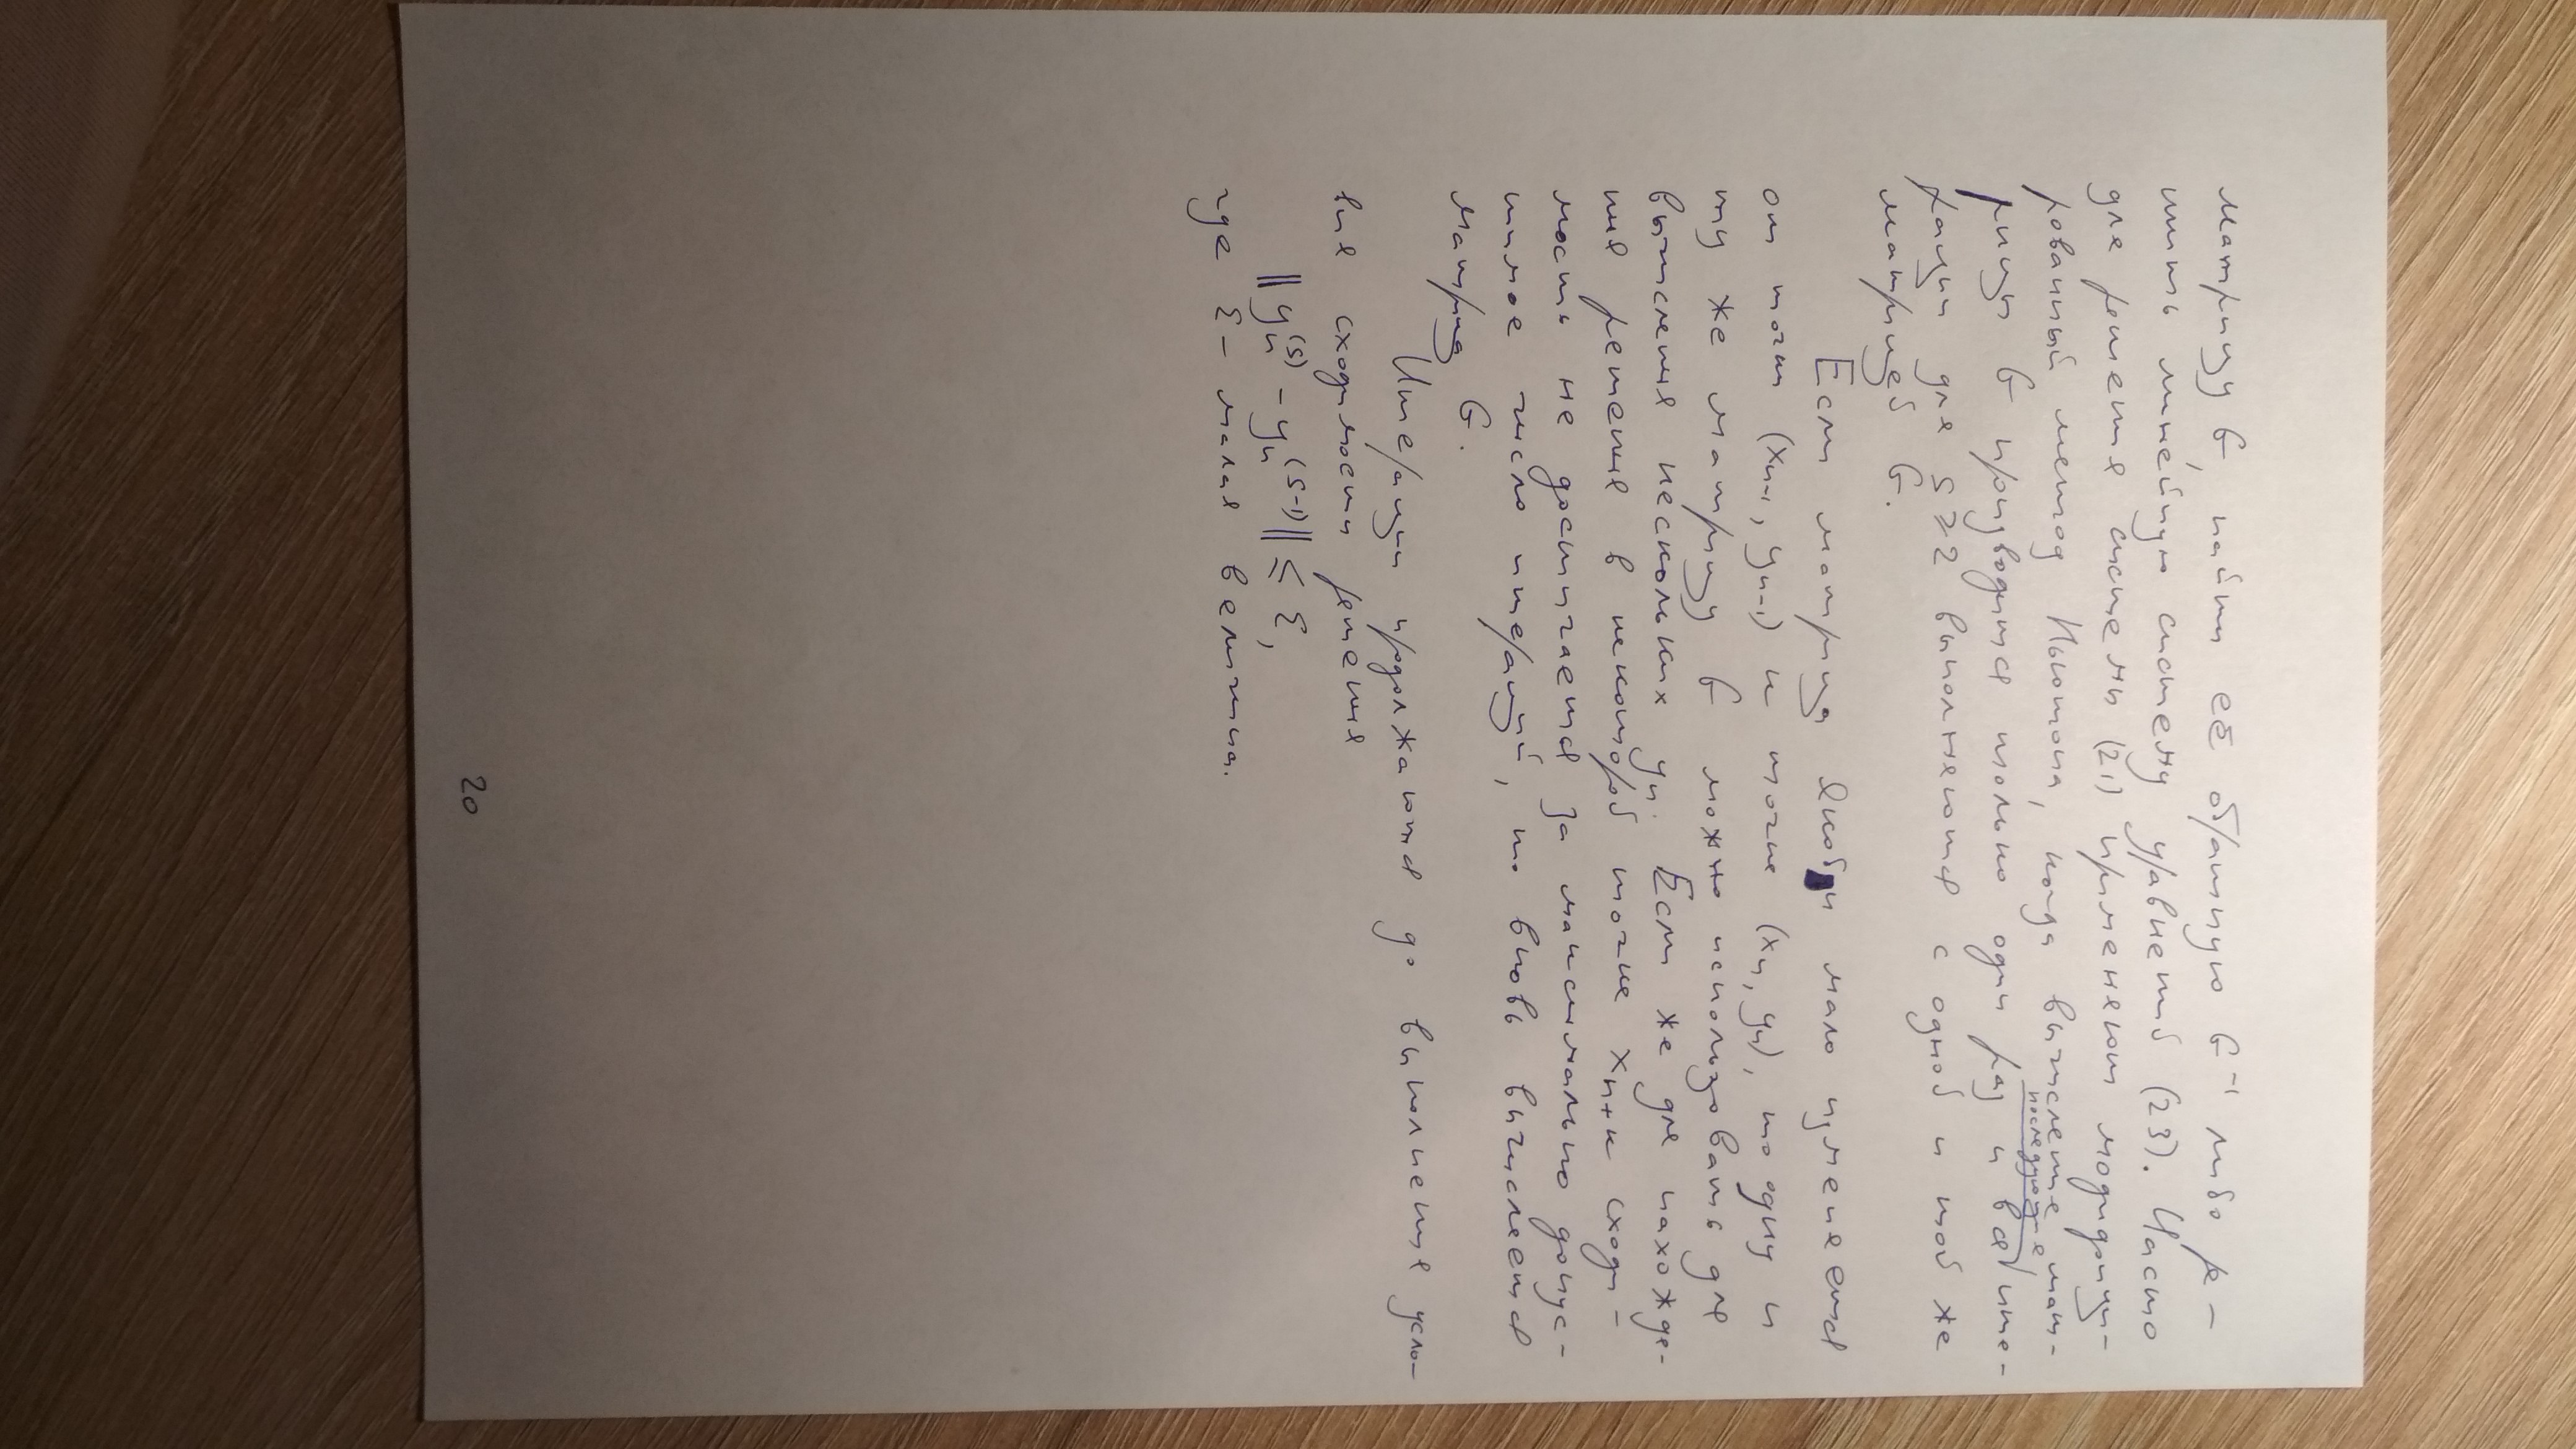 матрицу G, найти её обратную G⁻¹ либо ре-
шить линейную систему уравнений (23). Часто
для решения системы (21) применяют модифици-
рованный метод Ньютона, когда вычисление мат-
последующие
рицы G производится только один раз и все ите-
рации для s ≥ 2 выполняются с одной и той же
матрицей G.
Если матрица Якоби мало изменяется
от точки (xₙ₋₁, yₙ₋₁) к точке (xₙ, yₙ), то одну и
ту же матрицу G можно использовать для
вычисления нескольких yₙ. Если же для нахожде-
ния решения в некоторой точке xₙ₊ₖ сходи-
мость не достигается за максимально допус-
тимое число итераций, то вновь вычисляется
матрица G.
Итерации продолжаются до выполнения усло-
вия сходимости решения
‖yₙ⁽ˢ⁾ − yₙ⁽ˢ⁻¹⁾‖ ≤ ε,
где ε – малая величина.
20